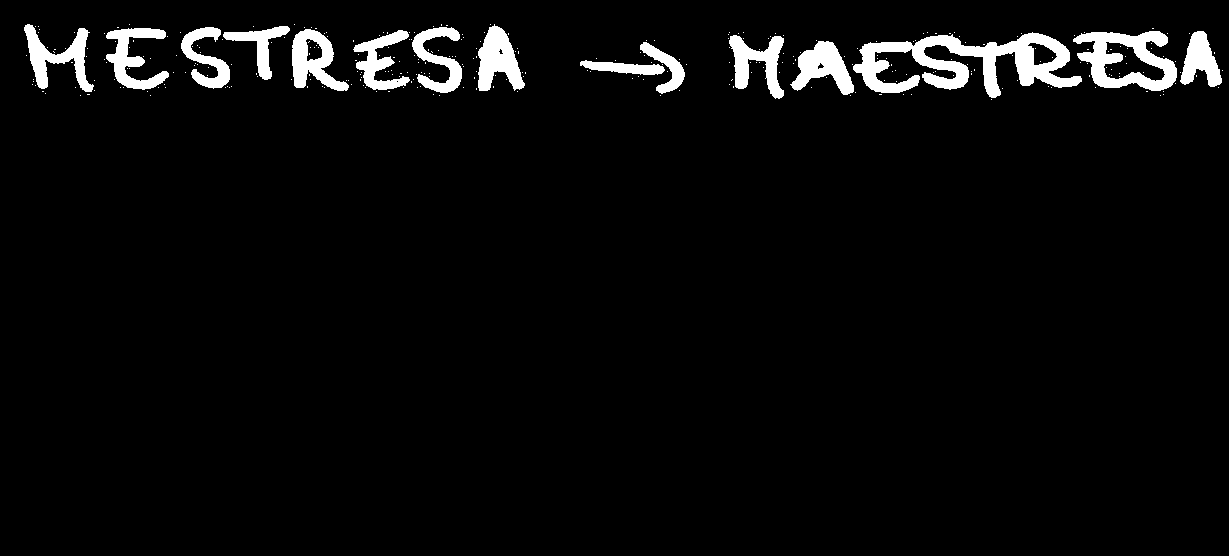 MESTRESA → MAESTRESA